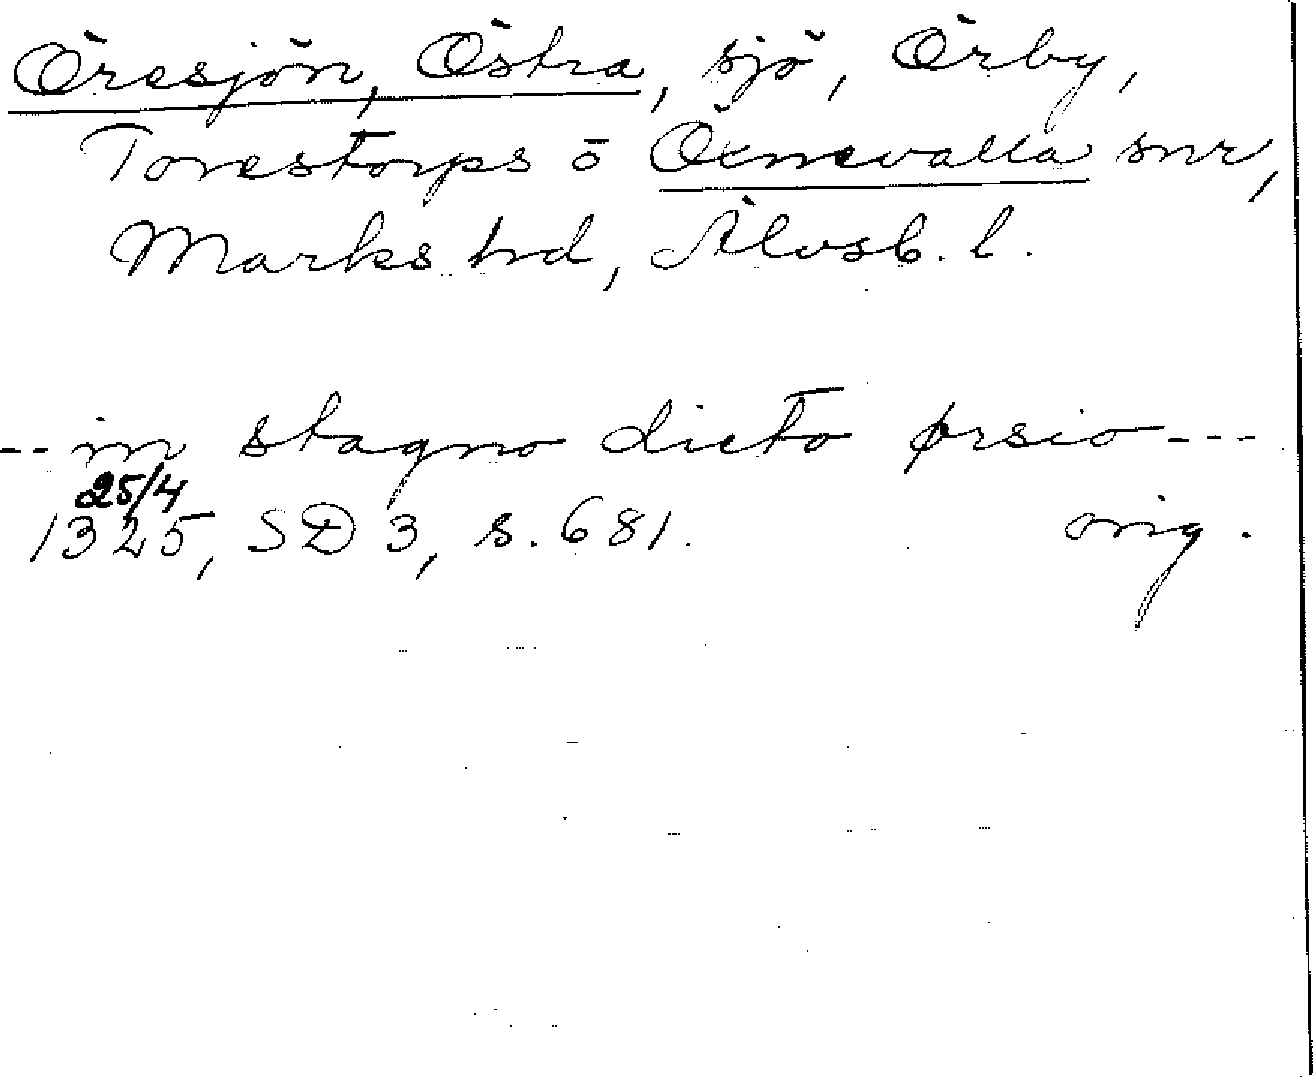 Öresjön, Östra, sjö, Örby,
Torestorps o Öxnevalla snr,
Marks hd, Älvsb. l.
-- in stagno dicto ørsio ---
25/4
1325, SD 3, s. 681. orig.